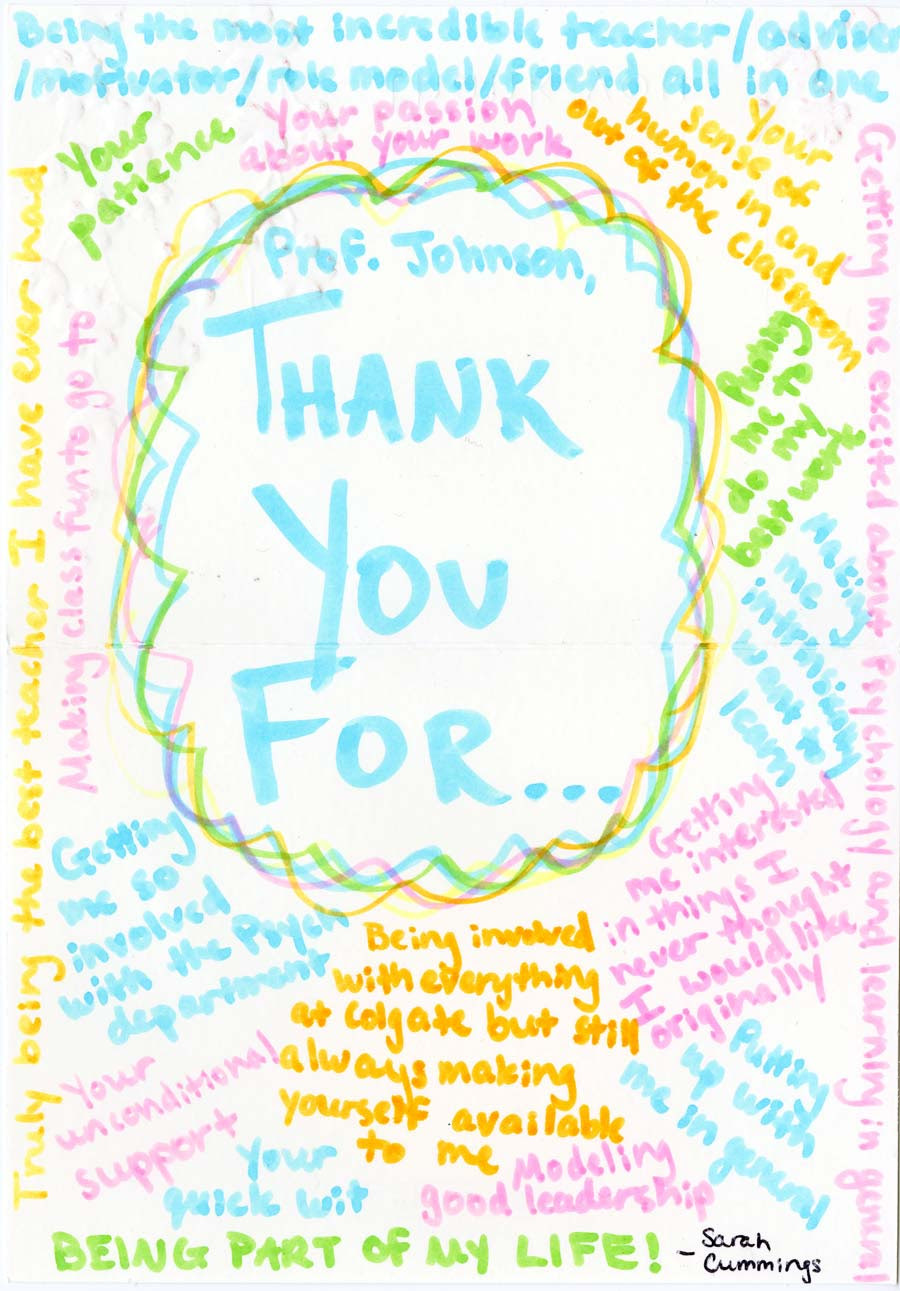 Being the most incredible teacher/adviser
/motivator/role model/friend all in one
Your
patience
Your passion
about your work
Your
sense of
humor in and
out of the
classroom
Prof. Johnson,
THANK
YOU
FOR...
Truly being the best teacher I have ever had
Making class fun to go to
Getting me excited about Psychology and learning in general
me to
do my
best work
Making
me
want to
learn
Getting
me interested
in things I
never thought
I would like
originally
Getting
me so
involved
with the Psych
department
Being involved
with everything
at Colgate but still
always making
yourself available
to me
Putting
up with
me in general
Your
unconditional
support
Your
quick wit
Modeling
good leadership
BEING PART OF MY LIFE!
- Sarah
Cummings